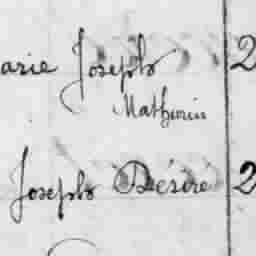 arie Joseph 2
Mathurin
Joseph Désiré 2